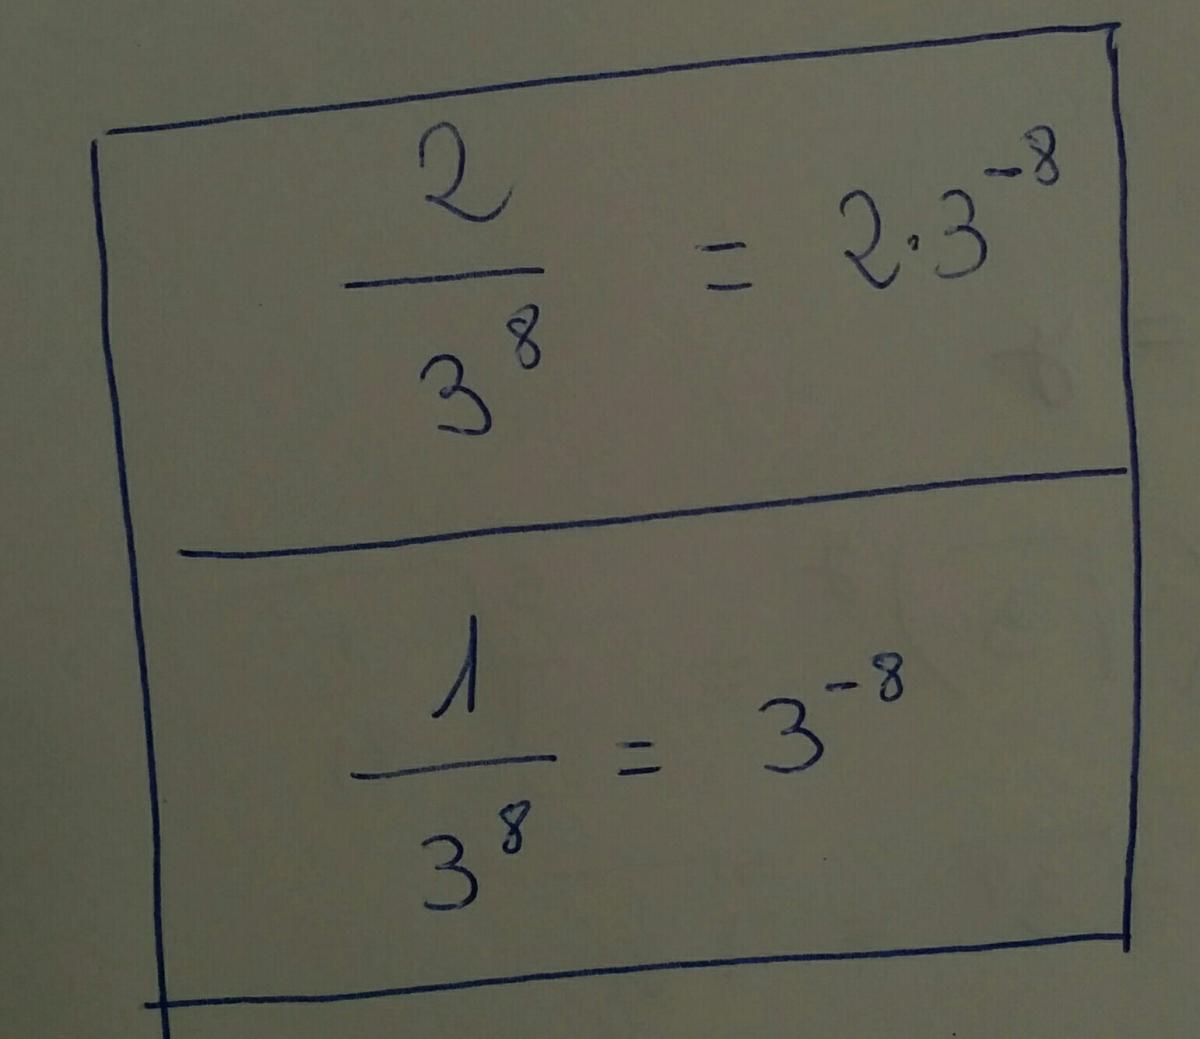 2/3^8 = 2·3^-8
1/3^8 = 3^-8